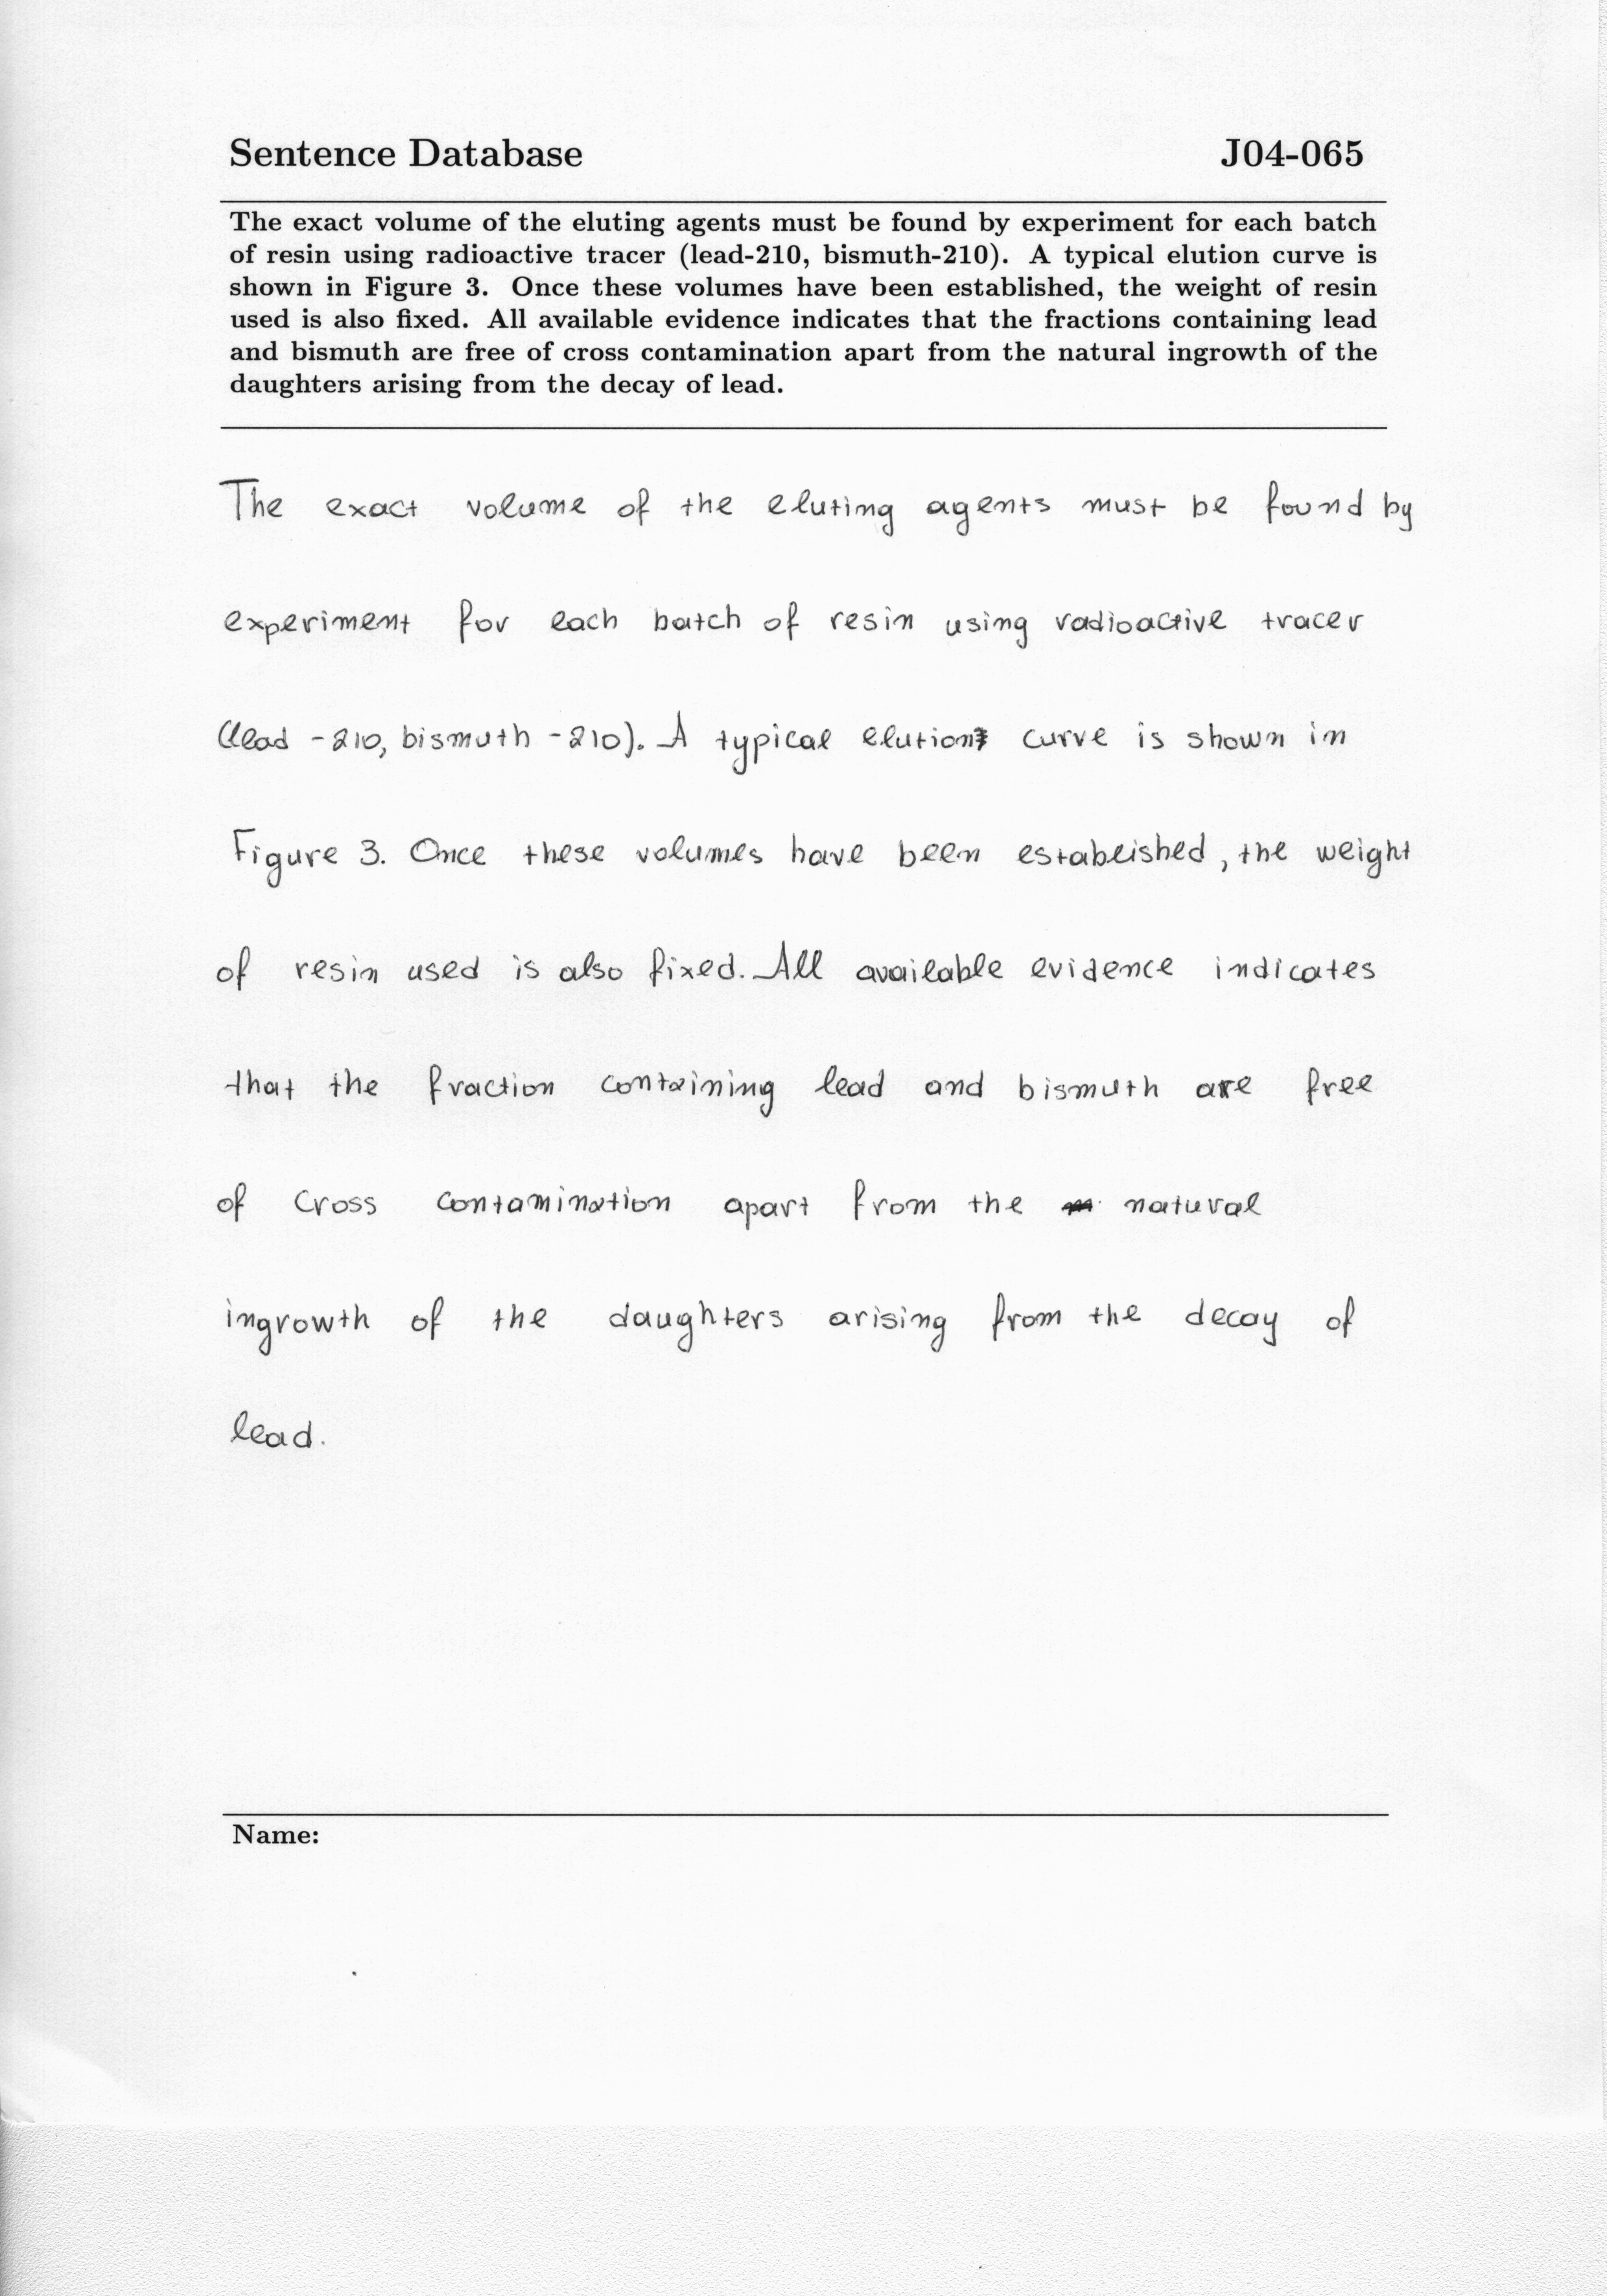 Sentence Database J04-065
The exact volume of the eluting agents must be found by experiment for each batch
of resin using radioactive tracer (lead-210, bismuth-210). A typical elution curve is
shown in Figure 3. Once these volumes have been established, the weight of resin
used is also fixed. All available evidence indicates that the fractions containing lead
and bismuth are free of cross contamination apart from the natural ingrowth of the
daughters arising from the decay of lead.
The exact volume of the eluting agents must be found by
experiment for each batch of resin using radioactive tracer
(lead -210, bismuth -210). A typical elution curve is shown in
Figure 3. Once these volumes have been established, the weight
of resin used is also fixed. All available evidence indicates
that the fraction containing lead and bismuth are free
of cross contamination apart from the natural
ingrowth of the daughters arising from the decay of
lead.
Name: